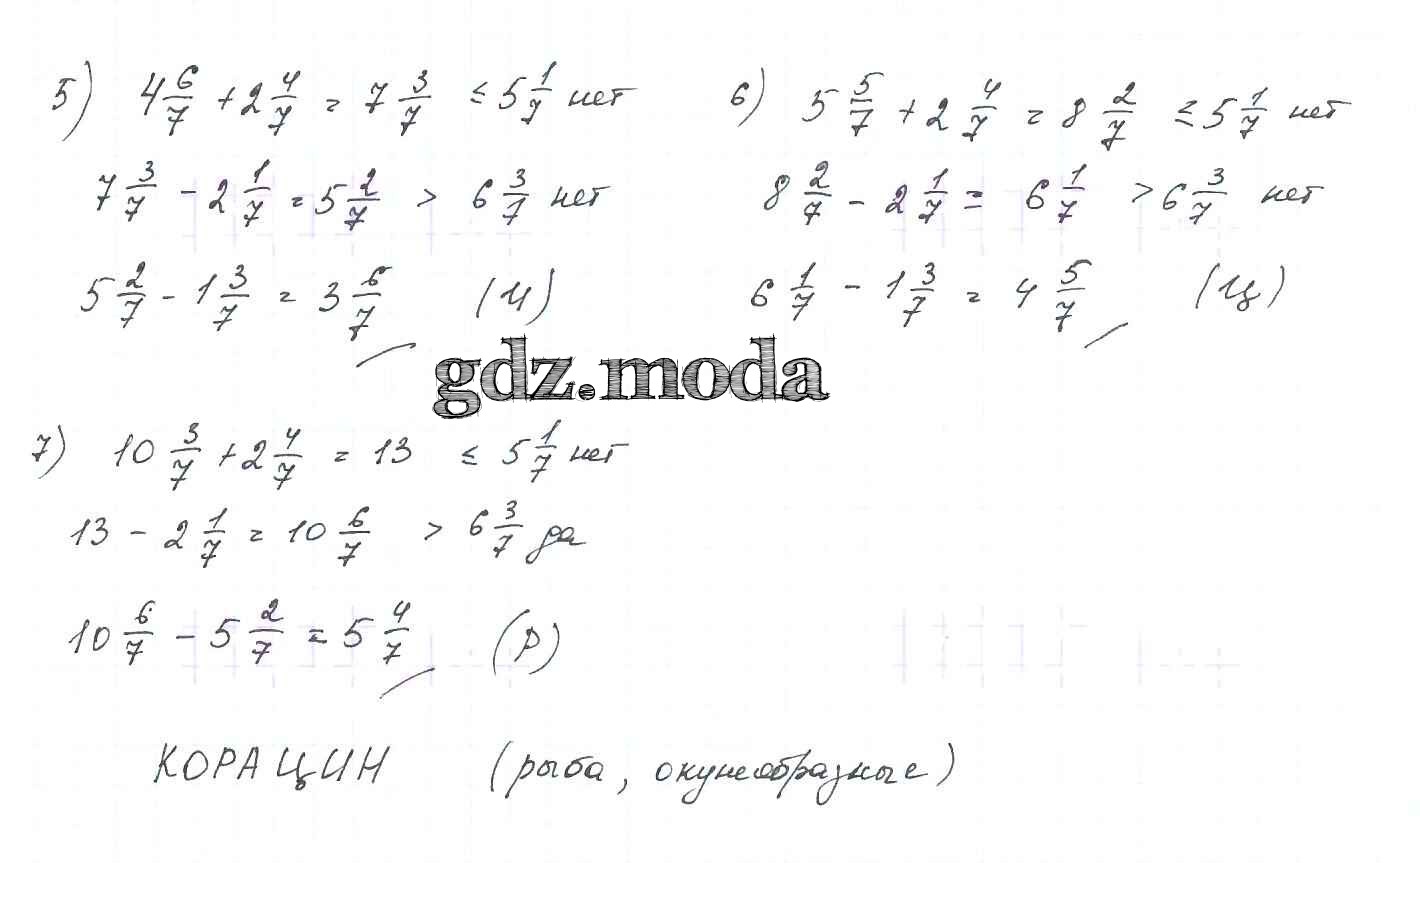 5) 4 6/7 + 2 4/7 = 7 3/7 ≤ 5 1/7 нет
7 3/7 - 2 1/7 = 5 2/7 > 6 3/7 нет
5 2/7 - 1 3/7 = 3 6/7 (И)
6) 5 5/7 + 2 4/7 = 8 2/7 ≤ 5 1/7 нет
8 2/7 - 2 1/7 = 6 1/7 > 6 3/7 нет
6 1/7 - 1 3/7 = 4 5/7 (Ц)
gdz.moda
7) 10 3/7 + 2 4/7 = 13 ≤ 5 1/7 нет
13 - 2 1/7 = 10 6/7 > 6 3/7 да
10 6/7 - 5 2/7 = 5 4/7 (Р)
КОРАЦИН (рыба, окунеобразные)